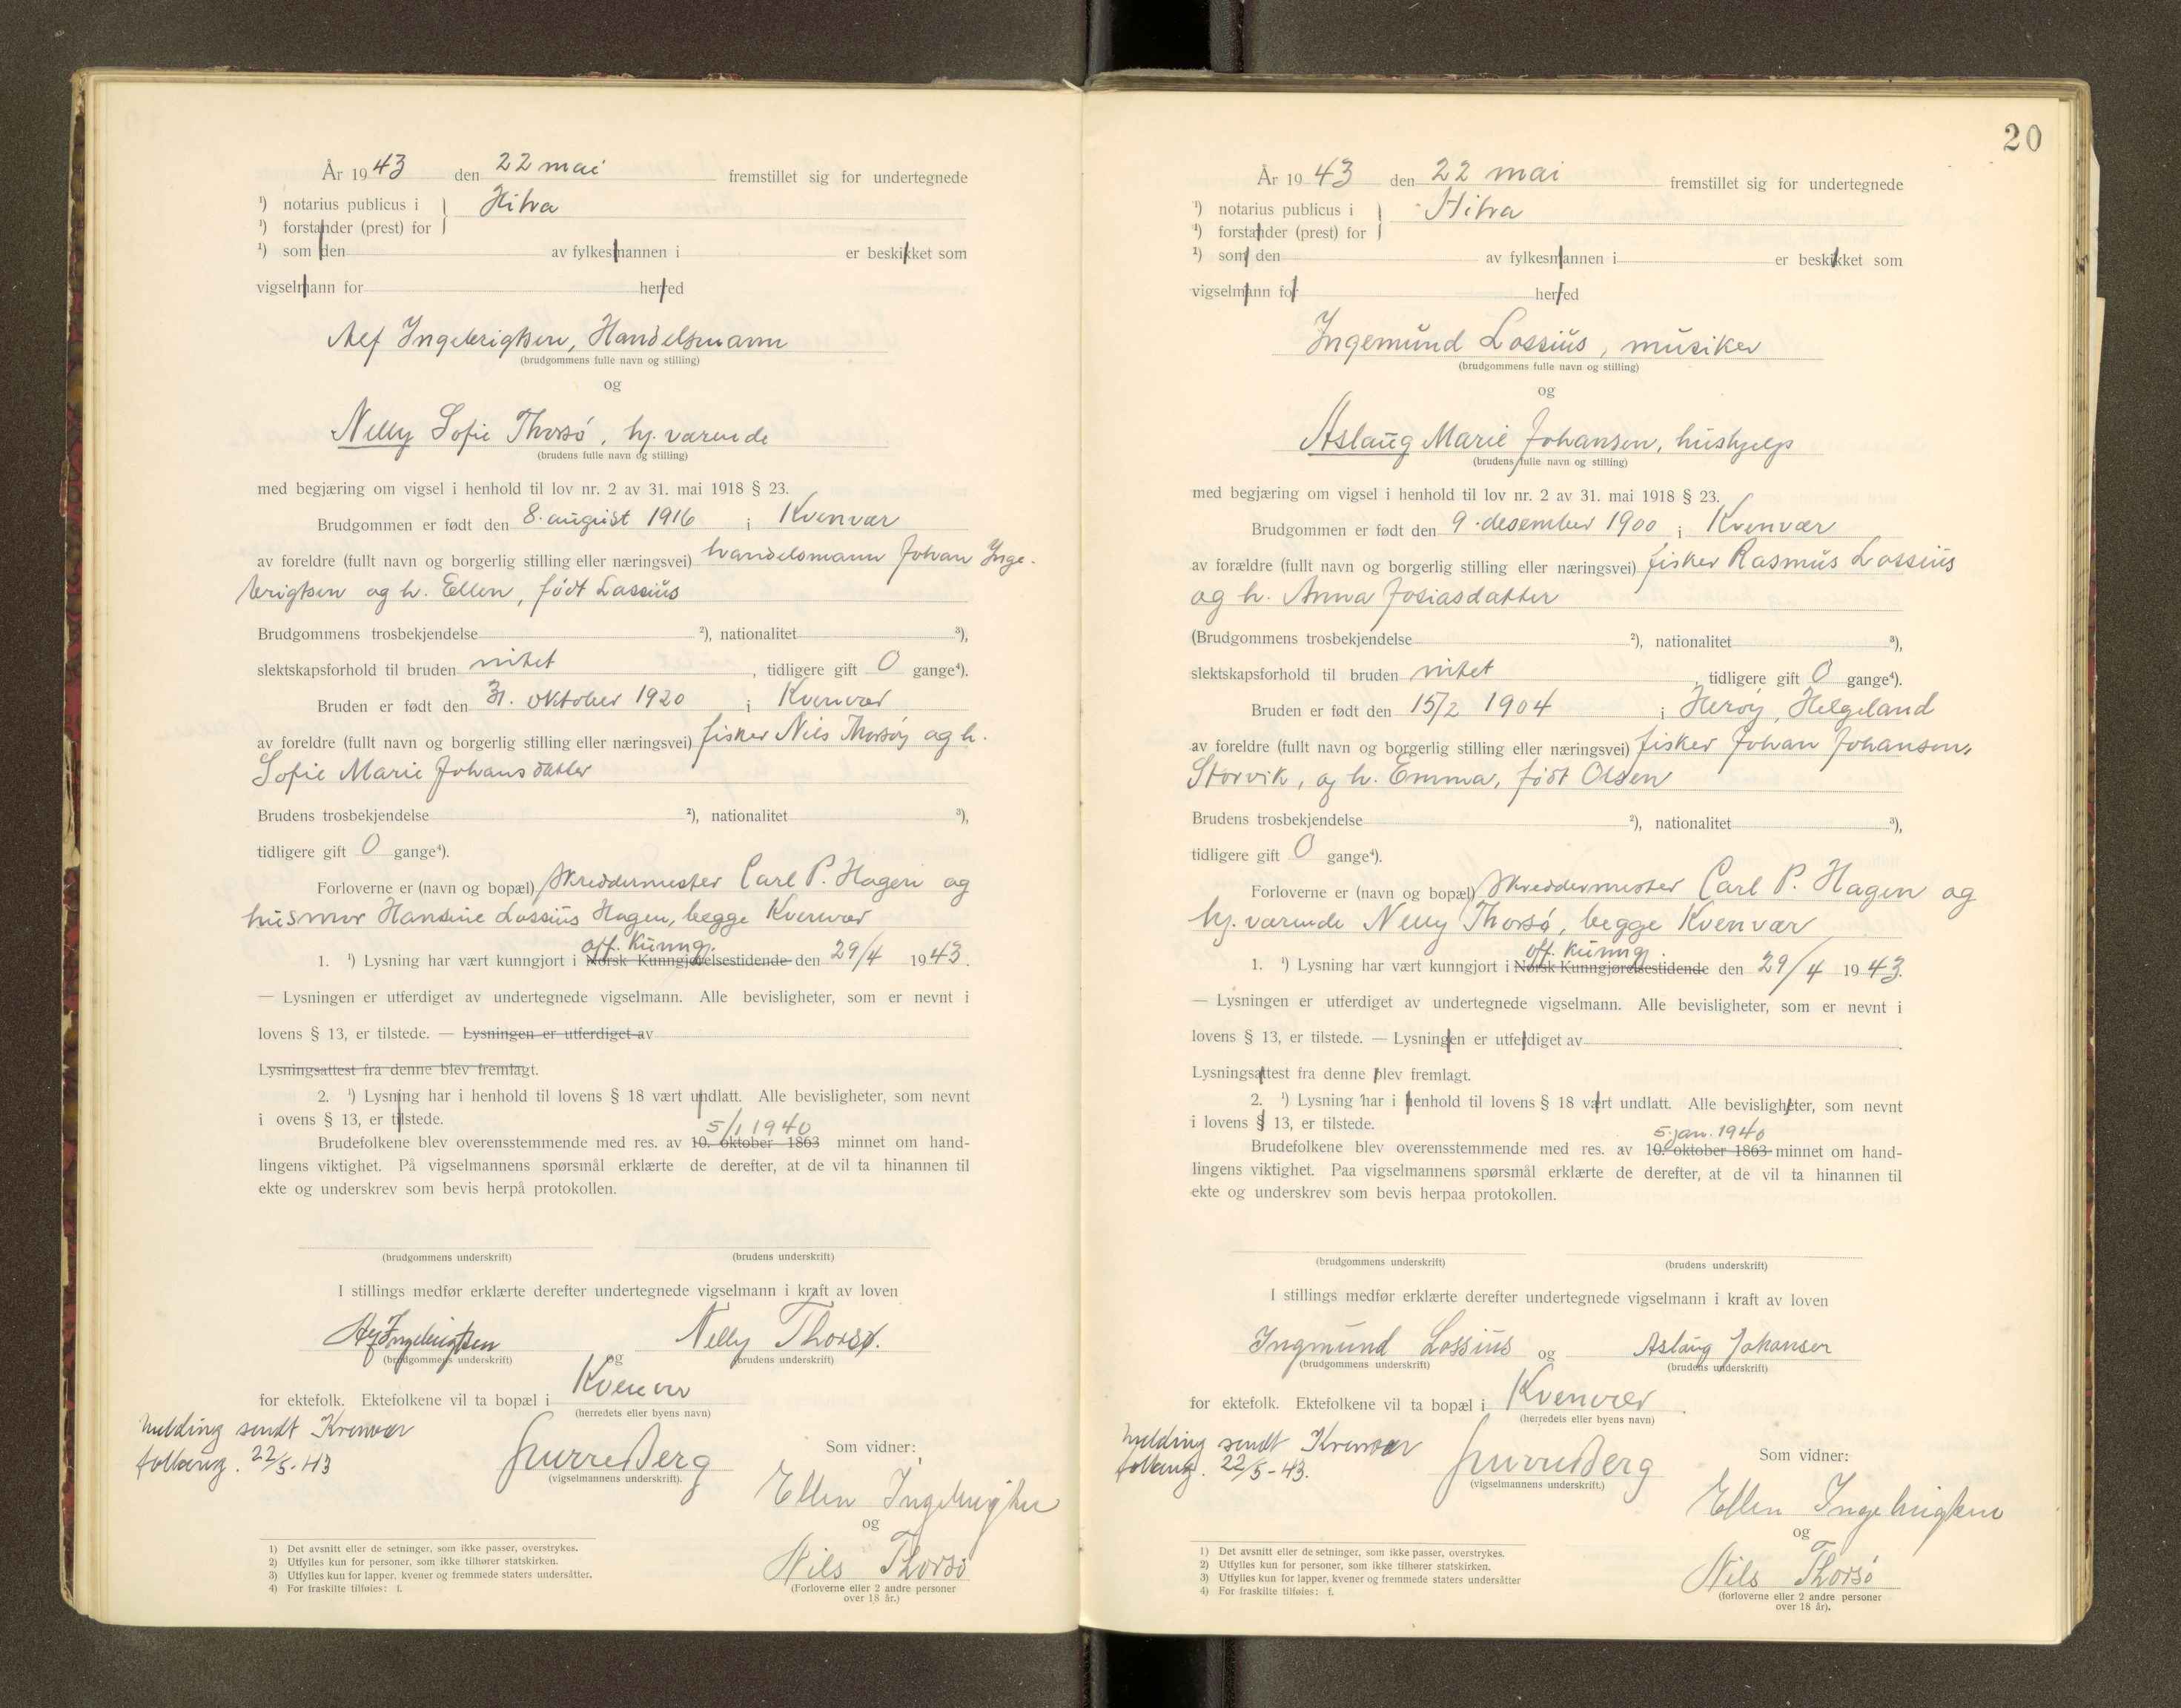 År 1943 den 22 mai fremstillet sig for undertegnede
¹) notarius publicus i } Hitra
¹) forstander (prest) for
¹) som den av fylkesmannen i er beskikket som
vigselmann for herred
Alf Ingebrigtsen, Handelsmann
(brudgommens fulle navn og stilling)
og
Nelly Sofie Thorsø, hj. værende
(brudens fulle navn og stilling)
med begjæring om vigsel i henhold til lov nr. 2 av 31. mai 1918 § 23.
Brudgommen er født den 8. august 1916 i Kvenvær
av foreldre (fullt navn og borgerlig stilling eller næringsvei) handelsmann Johan Inge-
brigtsen og h. Ellen, født Lossius
Brudgommens trosbekjendelse ²), nationalitet ³),
slektskapsforhold til bruden intet, tidligere gift 0 gange⁴).
Bruden er født den 31. oktober 1920 i Kvenvær
av foreldre (fullt navn og borgerlig stilling eller næringsvei) fisker Nils Thorsøy og h.
Sofie Marie Johansdatter
Brudens trosbekjendelse ²), nationalitet ³),
tidligere gift 0 gange⁴).
Forloverne er (navn og bopæl) skreddermester Carl P. Hagen og
husmor Hansine Lossius Hagen, begge Kvenvær
off. kunng.
1. ¹) Lysning har vært kunngjort i Norsk Kunngjørelsestidende den 29/4 1943.
— Lysningen er utferdiget av undertegnede vigselmann. Alle bevisligheter, som er nevnt i
lovens § 13, er tilstede. — Lysningen er utferdiget av
Lysningsattest fra denne blev fremlagt.
2. ¹) Lysning har i henhold til lovens § 18 vært undlatt. Alle bevisligheter, som nevnt
i ovens § 13, er tilstede.
5/1 1940
Brudefolkene blev overensstemmende med res. av 10. oktober 1863 minnet om hand-
lingens viktighet. På vigselmannens spørsmål erklærte de derefter, at de vil ta hinannen til
ekte og underskrev som bevis herpå protokollen.
(brudgommens underskrift) (brudens underskrift)
I stillings medfør erklærte derefter undertegnede vigselmann i kraft av loven
Alf Ingebrigtsen og Nelly Thorsø.
(brudgommens underskrift) (brudens underskrift)
for ektefolk. Ektefolkene vil ta bopæl i Kvenvær
(herredets eller byens navn)
Melding sendt Kvenvær
folkereg. 22/5-43
Sverre Berg
(vigselmannens underskrift).
Som vidner:
Ellen Ingebrigtsen
og
Nils Thorsø
(Forloverne eller 2 andre personer
over 18 år.)
1) Det avsnitt eller de setninger, som ikke passer, overstrykes.
2) Utfylles kun for personer, som ikke tilhører statskirken.
3) Utfylles kun for lapper, kvener og fremmede staters undersåtter.
4) For fraskilte tilføies: f.
20
År 1943 den 22 mai fremstillet sig for undertegnede
¹) notarius publicus i } Hitra
¹) forstander (prest) for
¹) som den av fylkesmannen i er beskikket som
vigselmann for herred
Ingemund Lossius, musiker
(brudgommens fulle navn og stilling)
og
Aslaug Marie Johansen, hushjelp
(brudens fulle navn og stilling)
med begjæring om vigsel i henhold til lov nr. 2 av 31. mai 1918 § 23.
Brudgommen er født den 9. desember 1900 i Kvenvær
av forældre (fullt navn og borgerlig stilling eller næringsvei) fisker Rasmus Lossius
og h. Anna Josiasdatter
(Brudgommens trosbekjendelse ²), nationalitet ³),
slektskapsforhold til bruden intet, tidligere gift 0 gange⁴).
Bruden er født den 15/2 1904 i Herøy, Helgeland
av foreldre (fullt navn og borgerlig stilling eller næringsvei) fisker Johan Johansen,
Storvik, og h. Emma, født Olsen
Brudens trosbekjendelse ²), nationalitet ³),
tidligere gift 0 gange⁴).
Forloverne er (navn og bopæl) skreddermester Carl P. Hagen og
hj. værende Nelly Thorsø, begge Kvenvær
off. kunng.
1. ¹) Lysning har vært kunngjort i Norsk Kunngjørelsestidende den 29/4 1943.
— Lysningen er utferdiget av undertegnede vigselmann. Alle bevisligheter, som er nevnt i
lovens § 13, er tilstede. — Lysningen er utferdiget av
Lysningsattest fra denne blev fremlagt.
2. ¹) Lysning har i henhold til lovens § 18 vært undlatt. Alle bevisligheter, som nevnt
i lovens § 13, er tilstede.
5. jan. 1940
Brudefolkene blev overensstemmende med res. av 10. oktober 1863 minnet om hand-
lingens viktighet. Paa vigselmannens spørsmål erklærte de derefter, at de vil ta hinannen til
ekte og underskrev som bevis herpaa protokollen.
(brudgommens underskrift) (brudens underskrift)
I stillings medfør erklærte derefter undertegnede vigselmann i kraft av loven
Ingmund Lossius og Aslaug Johansen
(brudgommens underskrift) (brudens underskrift)
for ektefolk. Ektefolkene vil ta bopæl i Kvenvær
(herredets eller byens navn)
Melding sendt Kvenvær
folkereg. 22/5-43.
Sverre Berg
(vigselmannens underskrift.)
Som vidner:
Ellen Ingebrigtsen
og
Nils Thorsø
(forloverne eller 2 andre personer
over 18 år).
1) Det avsnitt eller de setninger, som ikke passer, overstrykes.
2) Utfylles kun for personer, som ikke tilhører statskirken.
3) Utfylles kun for lapper, kvener og fremmede staters undersåtter
4) For fraskilte tilføies: f.